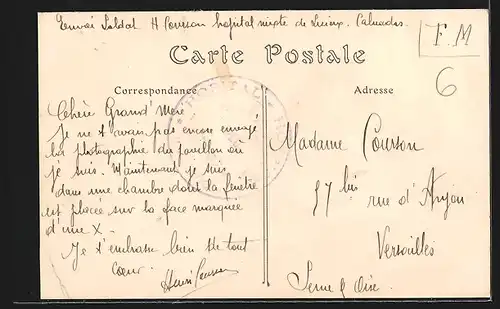 Envoi Soldat H Courson hopital mixte de Lisieux. Calvados
F. M
Carte Postale
6
Correspondance
Adresse
Chère Grand'Mère
Je ne t'avais pas encore envoyé
la photographie du pavillon où
je suis. Maintenant je suis
dans une chambre dont la fenêtre
est placée sur la face marquée
d'une X.
Je t'embrasse bien de tout
cœur.
Henri Courson
Madame Courson
57 bis rue d'Anjou
Versailles
Seine & Oise.